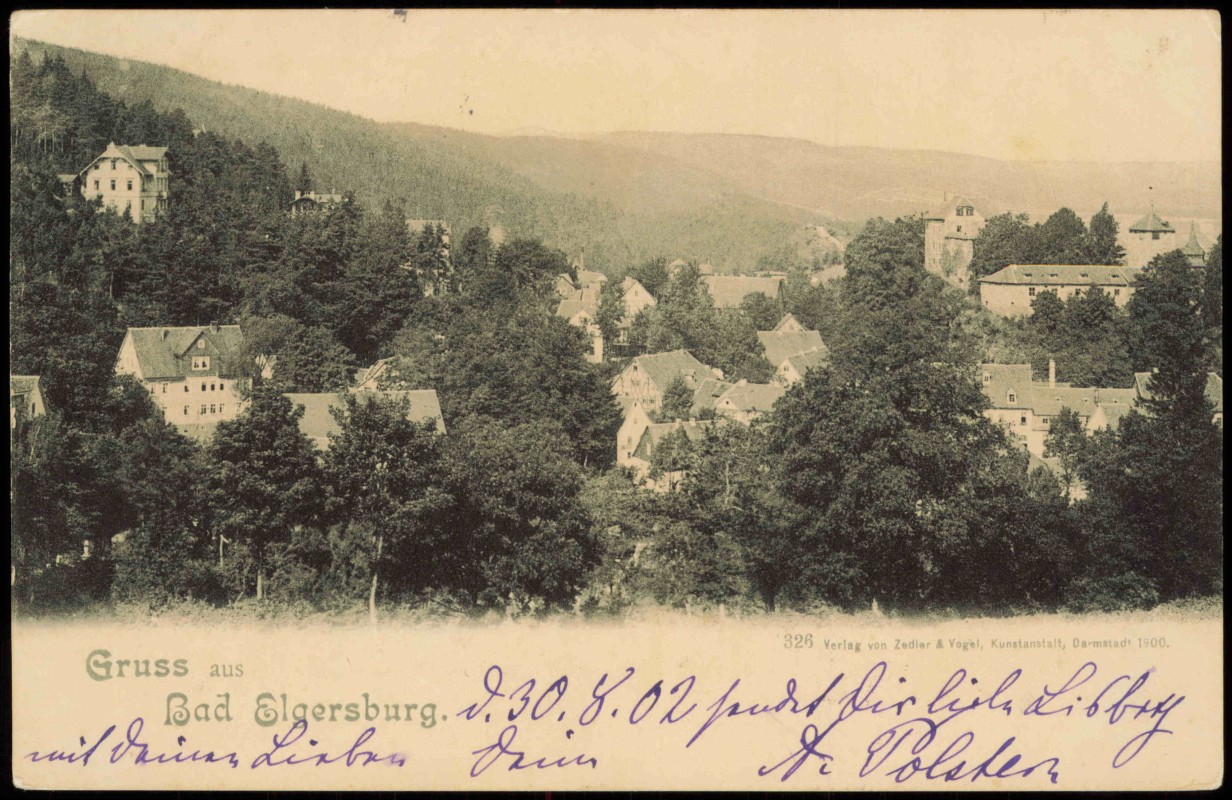 326 Verlag von Zedler & Vogel, Kunstanstalt, Darmstadt 1900.
Gruss aus
Bad Elgersburg. d. 30. 8. 02 sendet Dir liebe Lisbeth
mit Deinen Lieben Dein Dr Polstern